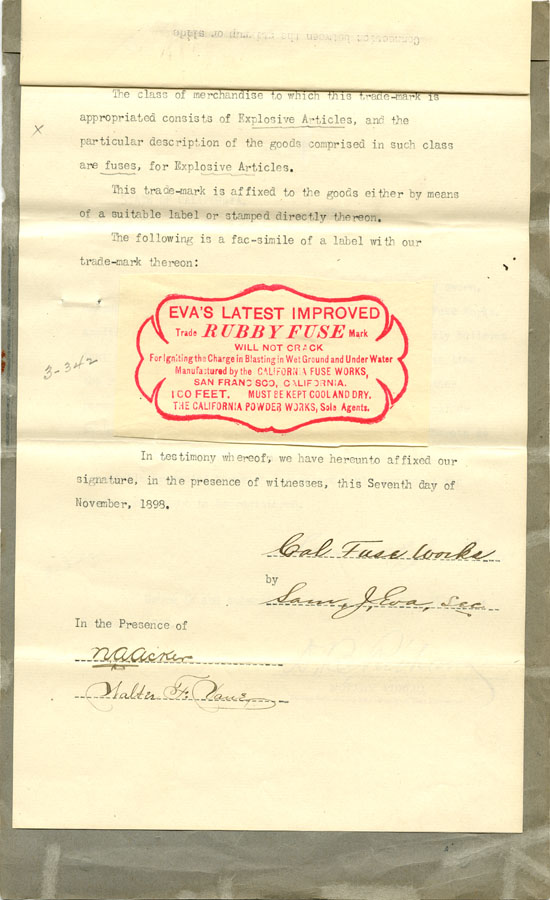 The class of merchandise to which this trade-mark is
appropriated consists of Explosive Articles, and the
particular description of the goods comprised in such class
are fuses, for Explosive Articles.
This trade-mark is affixed to the goods either by means
of a suitable label or stamped directly thereon.
The following is a fac-simile of a label with our
trade-mark thereon:
3-342
EVA'S LATEST IMPROVED
Trade RUBBY FUSE Mark
WILL NOT CRACK
For Igniting the Charge in Blasting in Wet Ground and Under Water
Manufactured by the CALIFORNIA FUSE WORKS,
SAN FRANCISCO, CALIFORNIA.
100 FEET. MUST BE KEPT COOL AND DRY.
THE CALIFORNIA POWDER WORKS, Sole Agents.
In testimony whereof, we have hereunto affixed our
signature, in the presence of witnesses, this Seventh day of
November, 1898.
Cal Fuse Works
by
Sam, J, Eva, Sec
In the Presence of
N A Acker
Walter F. Vane